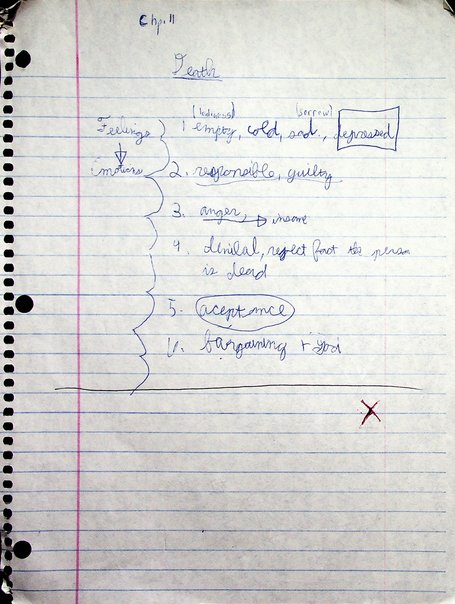 Chp. 11
Death
(sorrow)
Feelings 1 empty, cold, sad., depressed
Emotions 2. responsible, guilty
3. anger,
4 denial, reject fact the person
is dead
5. aceptance
bargaining + God